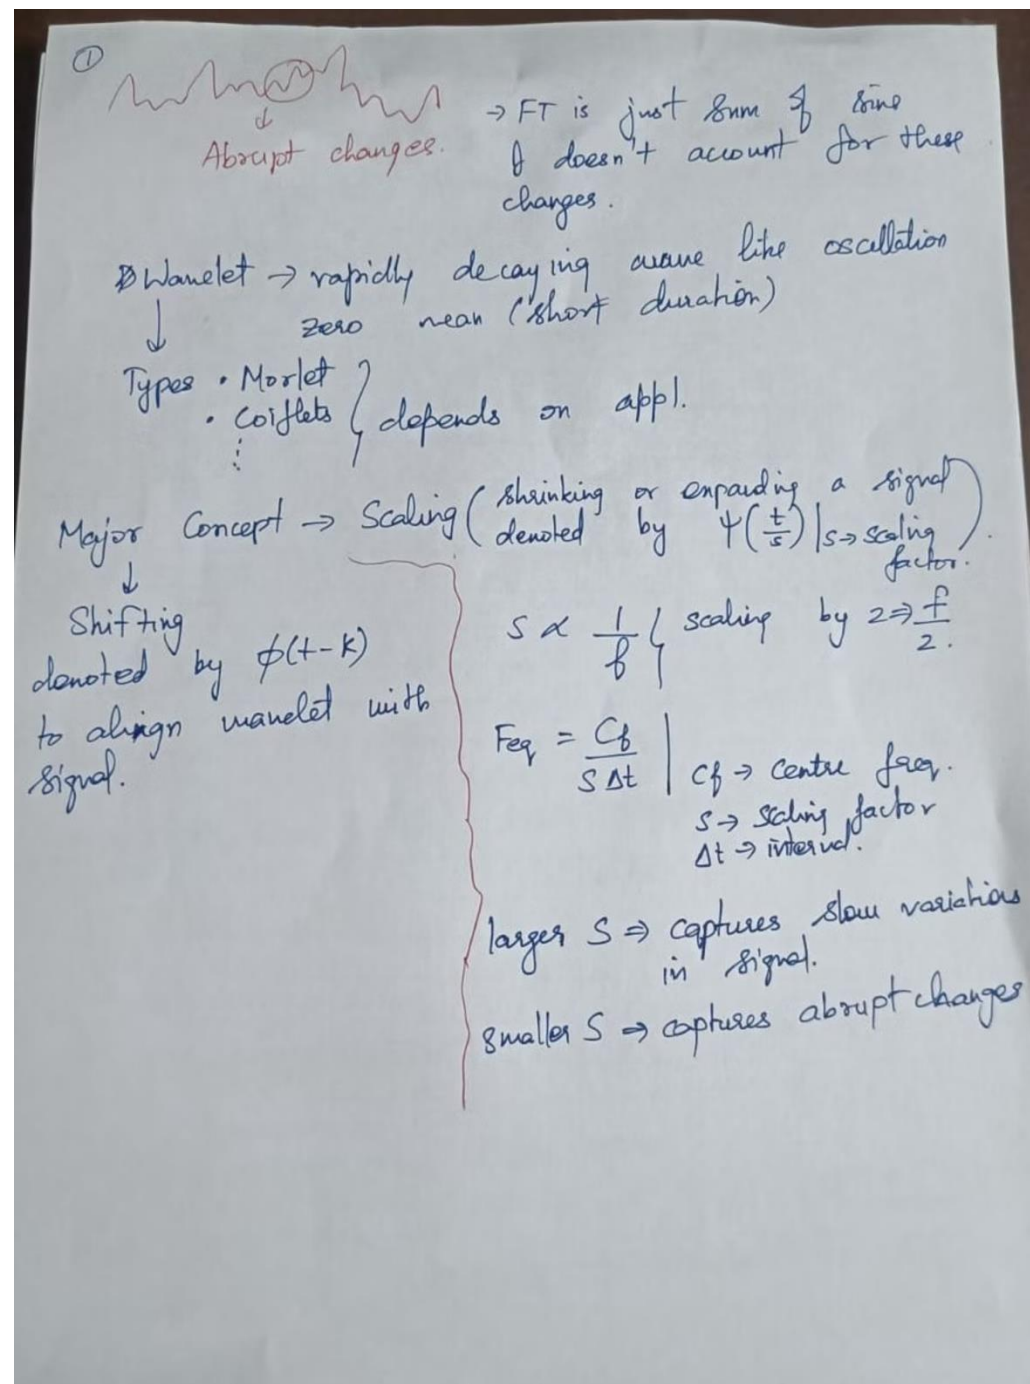 ①
Abrupt changes.
→ FT is just sum of sine
& doesn't account for these
changes.
Wavelet → rapidly decaying wave like oscillation
zero mean (short duration)
↓
Types • Morlet
• Coiflets
⋮
} depends on appl.
Major Concept → Scaling ( shrinking or expanding a signal
denoted by ψ(t/s) | s → scaling
factor. ).
↓
Shifting
denoted by ϕ(t-k)
to align wavelet with
signal.
S ∝ 1/f } scaling by 2 ⇒ f/2.
Feq = Cf / S Δt | Cf → centre freq.
S → scaling factor
Δt → interval.
larger S ⇒ captures slow variations
in signal.
smaller S ⇒ captures abrupt changes